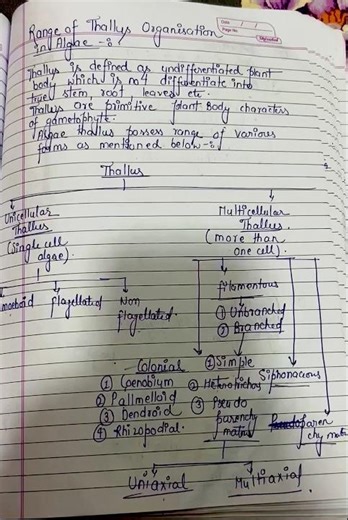 Date / /
Page No.
Range of Thallus Organisation
in Algae -:
Thallus is defined as undifferentiated plant
body which is not differentiate into
true stem, root leaves etc.
Thallus are primitive plant Body characters
of gametophyte.
Algae thallus possess range of various
forms as mentioned below -:
Thallus
Unicellular
Thallus
(single cell
algae).
Multicellular
Thallus.
(more than
one cell).
moeboid
flagellated
Non
flagellated.
filamentous
① Unbranched
② Branched
Colonial
① Coenobium
② Pallmelloid
③ Dendroid
④ Rhizopodial.
① Simple
② Heterotrichous
③ Pseudo
parenchy
matous
Siphonaceous
paren
chy mato
Uniaxial
Multiaxial